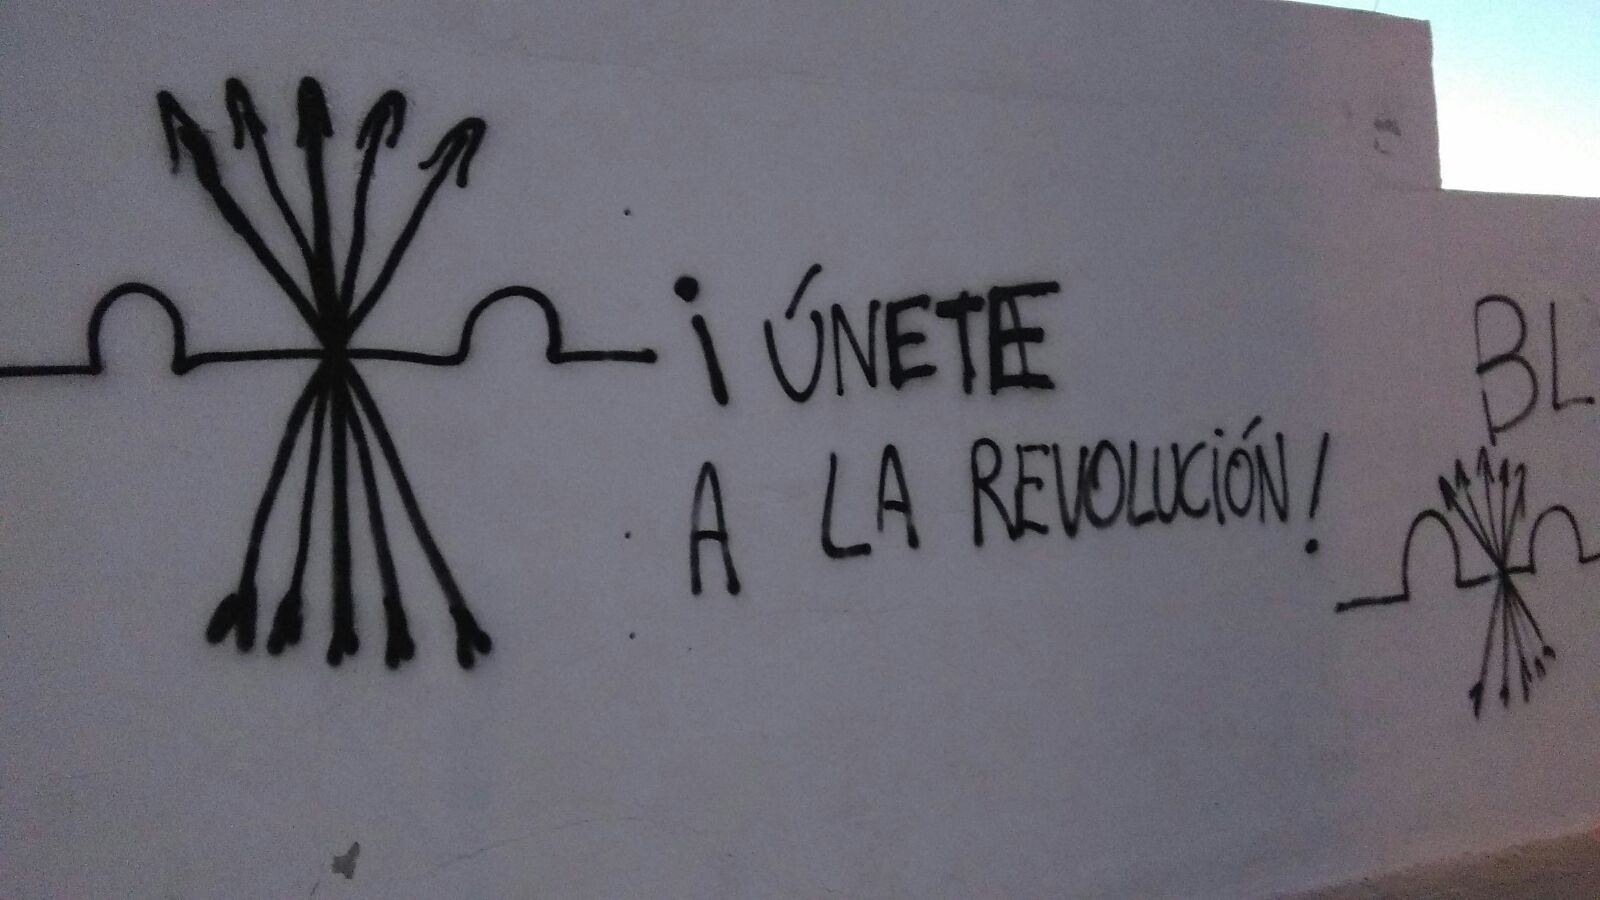 ¡ÚNETE
A LA REVOLUCIÓN!
BL